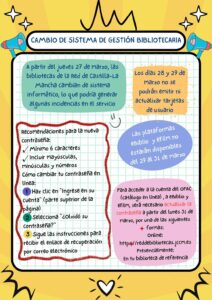 CAMBIO DE SISTEMA DE GESTIÓN BIBLIOTECARIA
A partir del jueves 27 de marzo, las
bibliotecas de la Red de Castilla-La
Mancha cambian de sistema
informático, lo que podría generar
algunas incidencias en el servicio
Los días 28 y 29
de marzo no se
podrán emitir ni
actualizar tarjetas
de usuario
Recomendaciones para la nueva
contraseña:
✓ Mínimo 6 caracteres
✓ Incluir mayúsculas,
minúsculas y números
Cómo cambiar tu contraseña en
línea:
1 Haz clic en "Ingrese en su
cuenta" (parte superior de la
página)
2 Selecciona "¿Olvidó su
contraseña?"
3 Sigue las instrucciones para
recibir el enlace de recuperación
por correo electrónico
Las plataformas
eBiblio y eFilm no
estarán disponibles
del 29 al 31 de marzo
Para acceder a la cuenta del OPAC
(catálogo en línea), a eBiblio y
eFilm, será necesario actualizar la
contraseña a partir del lunes 31 de
marzo, por una de las siguientes
formas:
Online:
Presencialmente:
En tu biblioteca de referencia